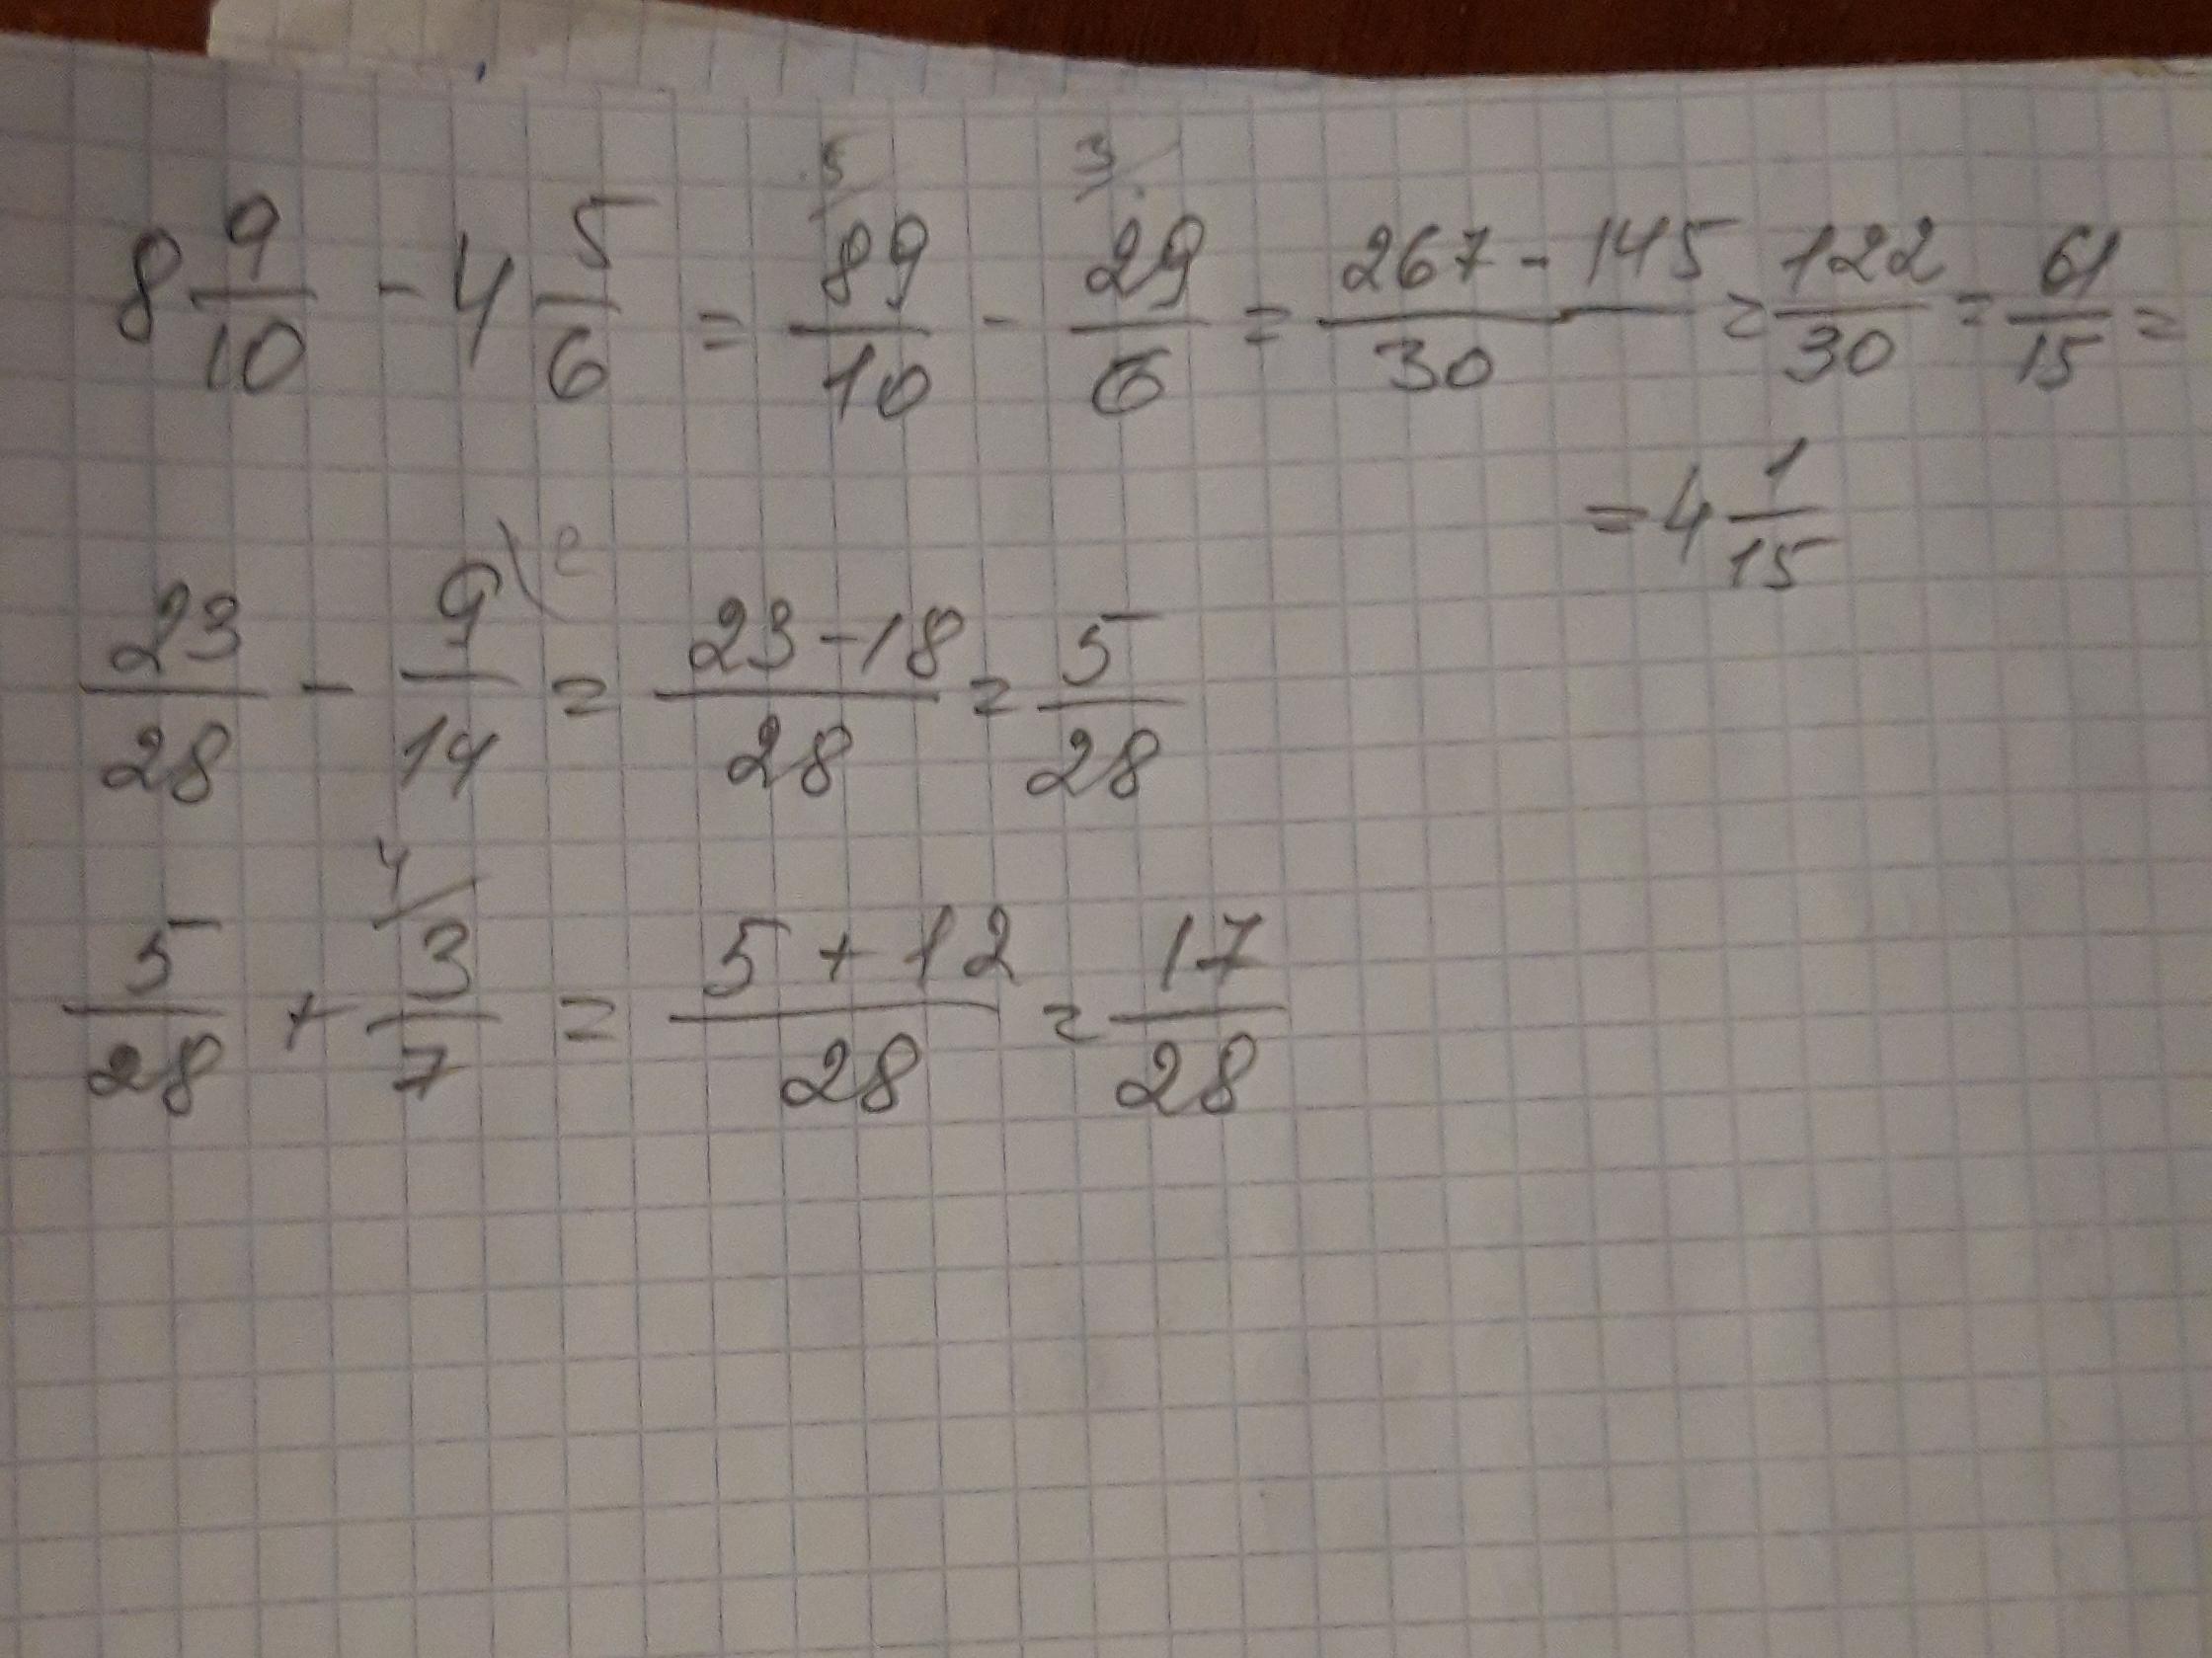 5/ 3/
8 9/10 - 4 5/6 = 89/10 - 29/6 = 267-145/30 = 122/30 = 61/15 =
= 4 1/15
\2
23/28 - 9/14 = 23-18/28 = 5/28
4/
5/28 + 3/7 = 5+12/28 = 17/28